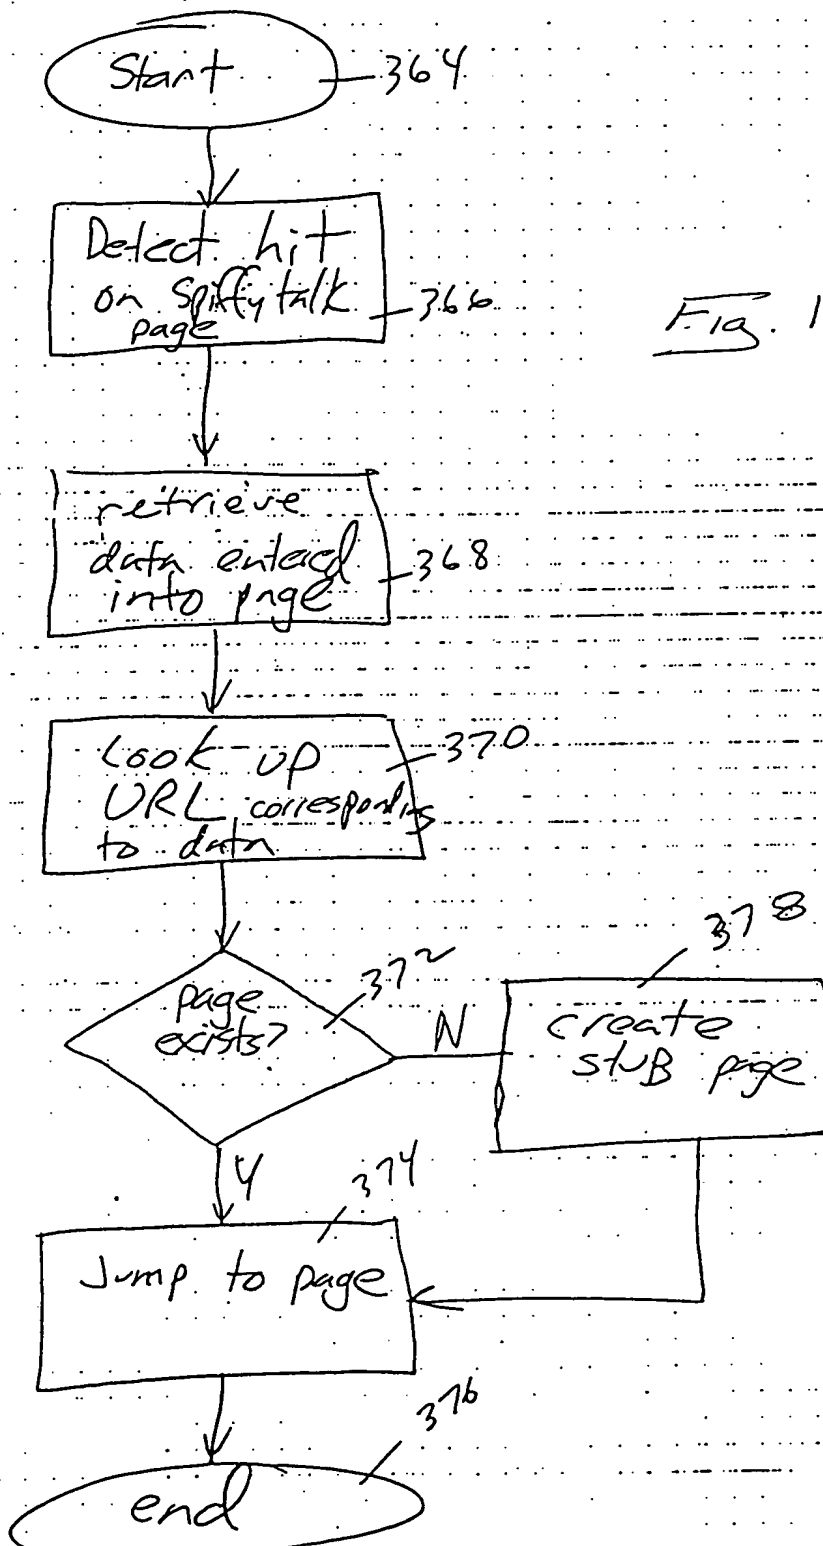 Start 364
Detect hit
on Spiffytalk
page 366
Fig. 1
retrieve
data entered
into page 368
Look up 370
URL corresponding
to data
page
exists? 372
N
create
stuB page 378
Y
Jump to page 374
end 376